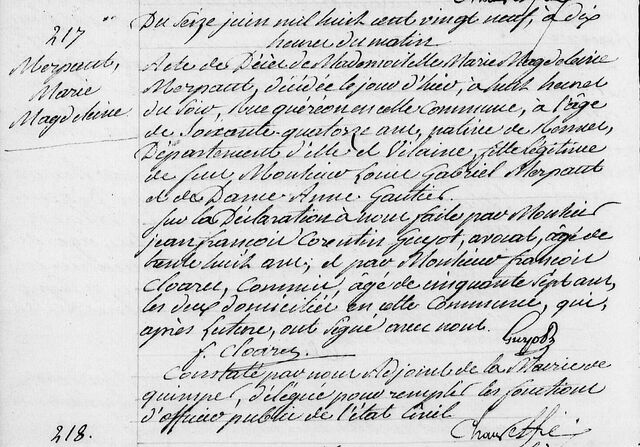 217
Morpaut,
Marie
Magdeleine
Du Seize juin mil huit cent vingt neuf, à dix
heures du matin
Acte de Décès de Mademoiselle Marie Magdelaine
Morpaut, décédée le jour d'hier, à huit heures
du Soir, rue quéréon en cette Commune, à l'âge
de Soixante quatorze ans, native de Rennes,
Département d'ille et Vilaine, fille légitime
de feu, Monsieur Louis Gabriel Morpaut
et de Dame Anne Gautier.
Sur la Déclaration à nous faite par Monsieur
jean françois Corentin Guyot, avocat, âgé de
trente huit ans; et par Monsieur françois
Cloarec, Commis, âgé de cinquante Sept ans,
les deux domiciliés en cette Commune, qui,
après Lecture, ont Signé avec nous.
f. Cloarec Guyot
Constaté par nous Adjoint de la Mairie de
quimper, délégué pour remplir les fonctions
d'officier public de l'état Civil
218.